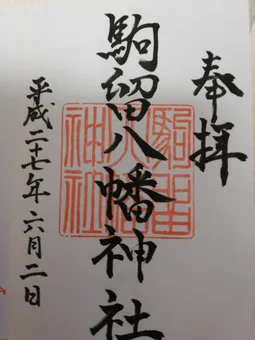 奉拝
駒留八幡神社
平成二十七年六月二日
駒留八幡神社